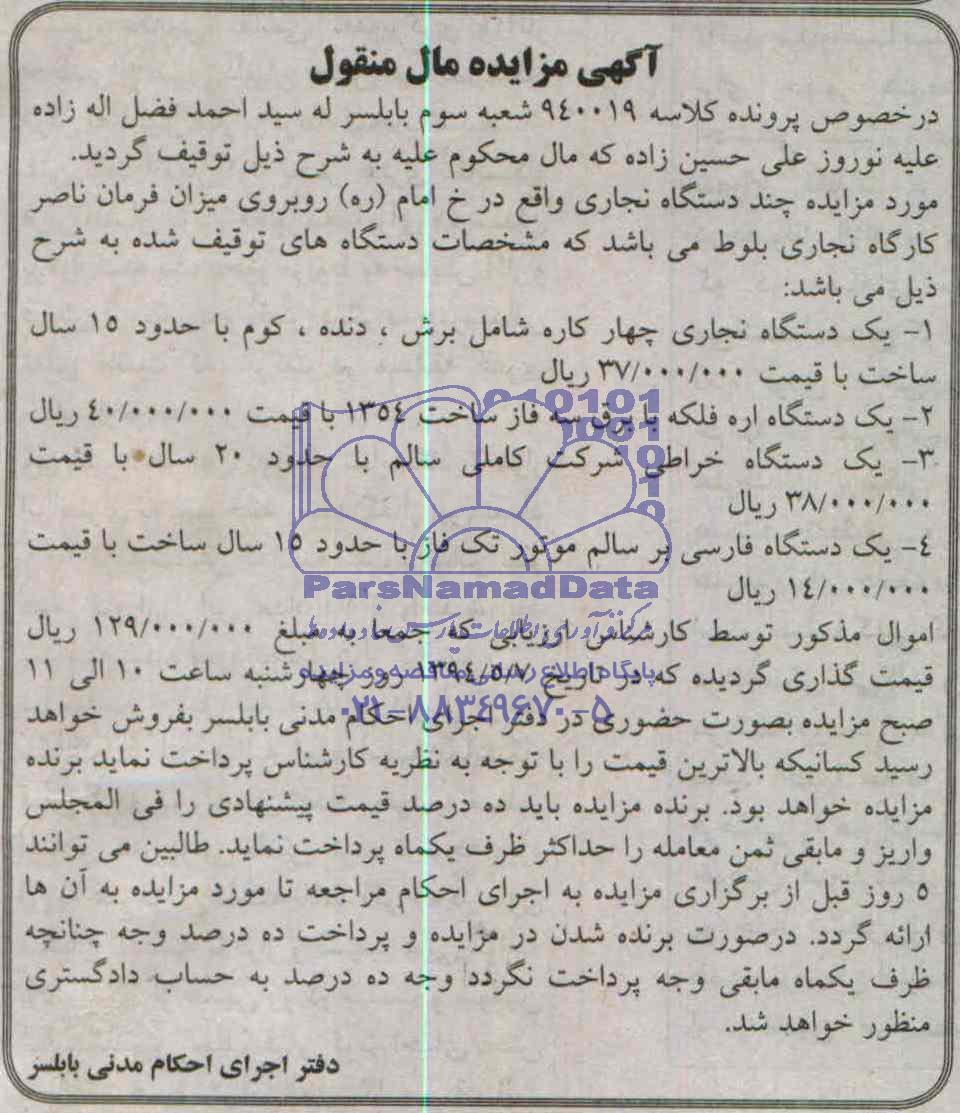 آگهی مزایده مال منقول
درخصوص پرونده کلاسه ۹۴۰۰۱۹ شعبه سوم بابلسر له سید احمد فضل اله زاده
علیه نوروز علی حسین زاده که مال محکوم علیه به شرح ذیل توقیف گردید.
مورد مزایده چند دستگاه نجاری واقع در خ امام (ره) روبروی میزان فرمان ناصر
کارگاه نجاری بلوط می باشد که مشخصات دستگاه های توقیف شده به شرح
ذیل می باشد:
۱- یک دستگاه نجاری چهار کاره شامل برش ، دنده ، کوم با حدود ۱۵ سال
ساخت با قیمت ۳۷/۰۰۰/۰۰۰ ریال
۲- یک دستگاه اره فلکه با برق سه فاز ساخت ۱۳۵۴ با قیمت ۴۰/۰۰۰/۰۰۰ ریال
۳- یک دستگاه خراطی شرکت کاملی سالم با حدود ۲۰ سال با قیمت
۳۸/۰۰۰/۰۰۰ ریال
۴- یک دستگاه فارسی بر سالم موتور تک فاز با حدود ۱۵ سال ساخت با قیمت
۱۴/۰۰۰/۰۰۰ ریال
ParsNamadData
اموال مذکور توسط کارشناس ارزیابی که جمعا به مبلغ ۱۲۹/۰۰۰/۰۰۰ ریال
قیمت گذاری گردیده که در تاریخ ۱۳۹۴/۵/۷ روز چهارشنبه ساعت ۱۰ الی ۱۱
پایگاه اطلاع رسانی مناقصه و مزایده
صبح مزایده بصورت حضوری در دفتر اجرای احکام مدنی بابلسر بفروش خواهد
۰۲۱-۸۸۳۴۹۶۷۰-۵
رسید کسانیکه بالاترین قیمت را با توجه به نظریه کارشناس پرداخت نماید برنده
مزایده خواهد بود. برنده مزایده باید ده درصد قیمت پیشنهادی را فی المجلس
واریز و مابقی ثمن معامله را حداکثر ظرف یکماه پرداخت نماید. طالبین می توانند
۵ روز قبل از برگزاری مزایده به اجرای احکام مراجعه تا مورد مزایده به آن ها
ارائه گردد. درصورت برنده شدن در مزایده و پرداخت ده درصد وجه چنانچه
ظرف یکماه مابقی وجه پرداخت نگردد وجه ده درصد به حساب دادگستری
منظور خواهد شد.
دفتر اجرای احکام مدنی بابلسر